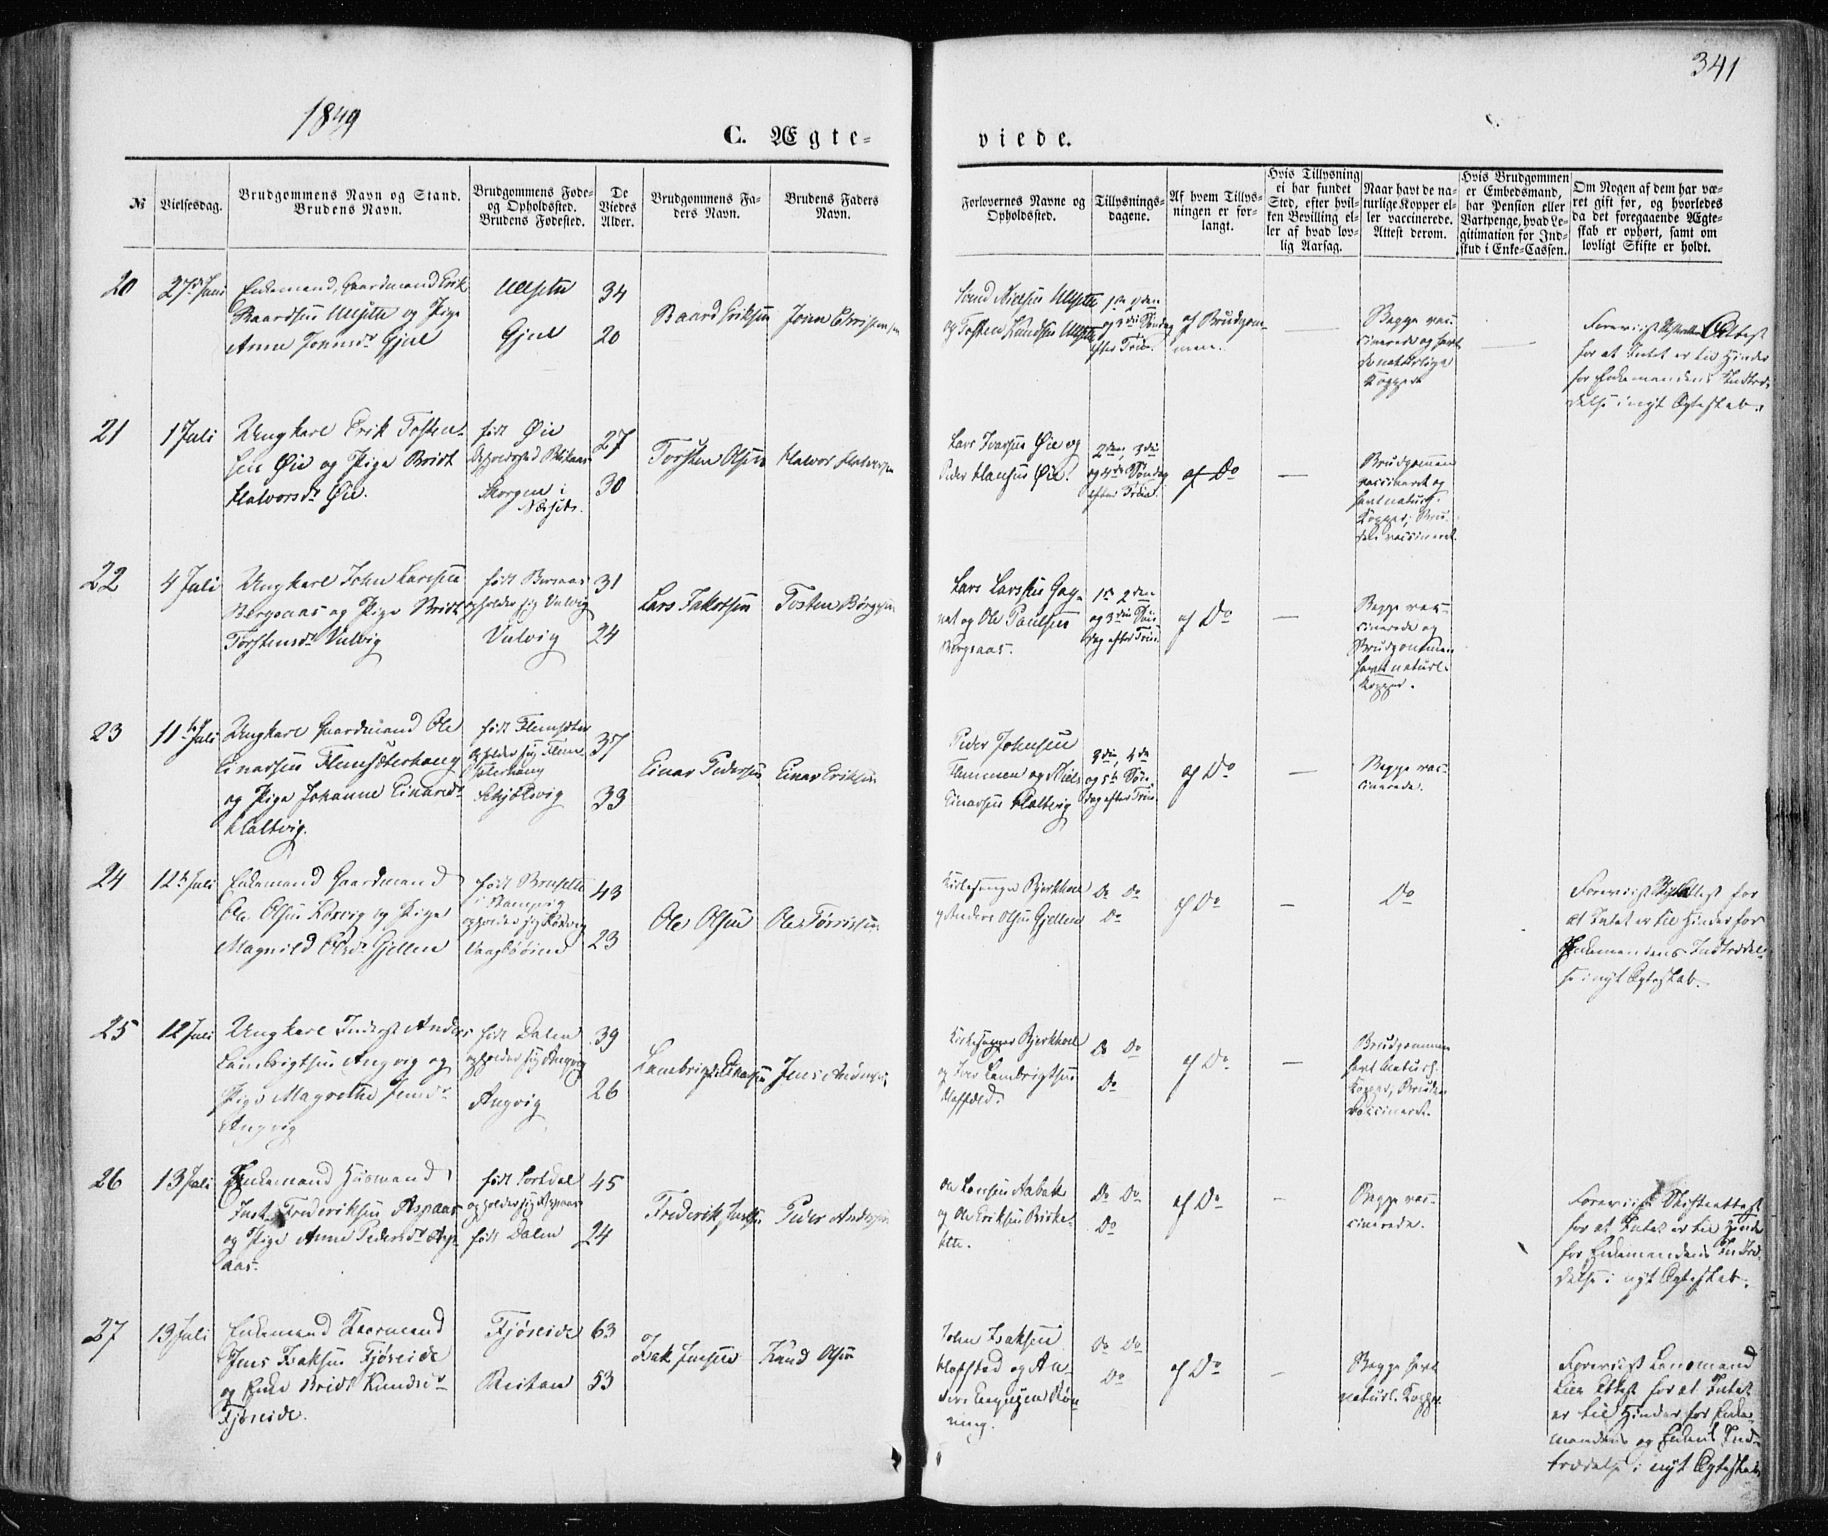 341
1849
C. Ægte-
viede.
№
Vielsesdag.
Brudgommens Navn og Stand.
Brudens Navn.
Brudgommens Føde-
og Opholdssted.
Brudens Fødested.
De
Viedes
Alder.
Brudgommens Fa-
ders Navn.
Brudens Faders
Navn.
Forlovernes Navne og
Opholdssted.
Tillysnings-
dagene.
Af hvem Tillys-
ningen er for-
langt.
Hvis Tillysning
ei har fundet
Sted, efter hvil-
ken Bevilling el-
ler af hvad lov-
lig Aarsag.
Naar havt de na-
turlige Kopper el-
ler vaccinerede.
Attest derom.
Hvis Brudgommen
er Embedsmand,
har Pension eller
Vartpenge, hvad Le-
gitimation for Ind-
skud i Enke-Cassen.
Om Nogen af dem har væ-
ret gift før, og hvorledes
da det foregaaende Ægte-
skab er ophørt, samt om
lovligt Skifte er holdt.
20
27de Juni
Enkemand, Gaardmand Erik
Baardsen Ulseth og Pige
Anne Joensdr Gjul
Ulseth
Gjul
34
20
Baard Eriksen
Joen Christensen
Nielsen Ulseth
og Tosten Knudsen Ulseth
1ste 2den
og 3die Søndag
efter Trin.
af Brudgom-
men.
—
Begge vac-
cinerede og havt
de naturlige
Kopper
—
Foreviist Skifteretten Attest
for at Intet er til Hinder
for Enkemandens Indtræ-
delse i nyt Ægteskab.
21
1 Juli
Ungkarl Erik Tosten-
sen Øie og Pige Bridt
Halvorsdr Øie.
født Øie
Opholdssted
Storgen i
27
30
Torsten Olsen
Halvor Halvorsen
Lars Ivarsen Øie og
Peder Hansen Øie.
2den, 3die
og 4de Søndag
efter Trin.
af Do
—
Brudgommen
vaccineret og
havt naturl.
Kopper; Bru-
den vaccineret.
22
4 Juli
Ungkarl John Larssen
Bergsaas og Pige Bridt
Torstensdr Vulvig
født Bersaas
opholder sig Vulvig
Vulvig
31
24
Lars Jakobsen
Tosten Børgesen
Lars Larssen Gag-
nat og Ole Paulsen
Bergsaas.
1ste 2den
og 3die Søn-
dag efter Trin.
af Do
—
Begge vac-
cinerede og
Brudgommen
havt naturl.
Kopper.
23
11te Juli
Ungkarl Gaardmand Ole
Einarsen Flemsæterhaug
og Pige Johanne Einarsdr
Holtvig.
født Flemsæter
opholder sig Flem-
sæterhaug
Skjølsvig
37
33
Einar Pedersen
Einar Eriksen
Peder Johnsen
Flemmen og Niels
Einarsen Holtvig
3die, 4de
og 5te Søn-
dag efter Trin.
af Do
—
Begge vac-
cinerede.
24
12te Juli
Enkemand Gaardmand
Ole Olsen Korsvig og Pige
Magnild Olsdr Gjellen
født Bruseth
i
opholder sig Korsvig
43
23
Ole Olsen
Ole Torrissen
Kirkesanger Bjerkhoel
og Anders Olsen Gjellen
Do Do
Do
af Do
—
Do
Foreviist Skifte Attest for
at Intet er til Hinder for
Enkemandens Indtrædel-
se i nyt Ægteskab.
25
12 Juli
Ungkarl Inderst Anders
Lambrigtsen Angvig og
Pige Magrethe Jensdr
Angvig
født Dalen
opholder sig Angvig
Angvig
39
26
Lambrigt Einarsen
Jens Andersen
Kirkesanger Bjerkhoel
og Iver Lambrigtsen
Do Do
Do
af Do
—
Brudgommen
havt Naturl.
Kopper, Bruden
vaccineret.
26
13 Juli
Enkemand Huusmand
Just Frederiksen Aspaas
og Pige Anne Pedersdr Asp-
aas.
født Torsdal
opholder sig Aspaas
født Dalen
45
24
Frederik Justsen
Peder Andersen
Ole Larsen Aabak
og Ole Eriksen Birke-
seth.
Do Do
Do
af Do
—
Begge vac-
cinerede.
Foreviist Skifteattest
for at Intet er til Hinder
for Enkemandens Indtræ-
delse i nyt Ægteskab.
27
13 Juli
Enkemand Kaarmand
Jens Isaksen Fjøseide
og Enke Bridt Knudsdr
Fjøseide.
Fjøseide
Reitan
63
53
Isak Jensen
Knud Olsen
John Isaksen
Hofsted og An-
ders
Do Do
Do
af Do
—
Begge havt
naturl. Kopper
Foreviist Lensmand
Lien Attest for at Intet
er til Hinder for Enke-
mandens og Enkens Ind-
trædelse i nyt Ægteskab